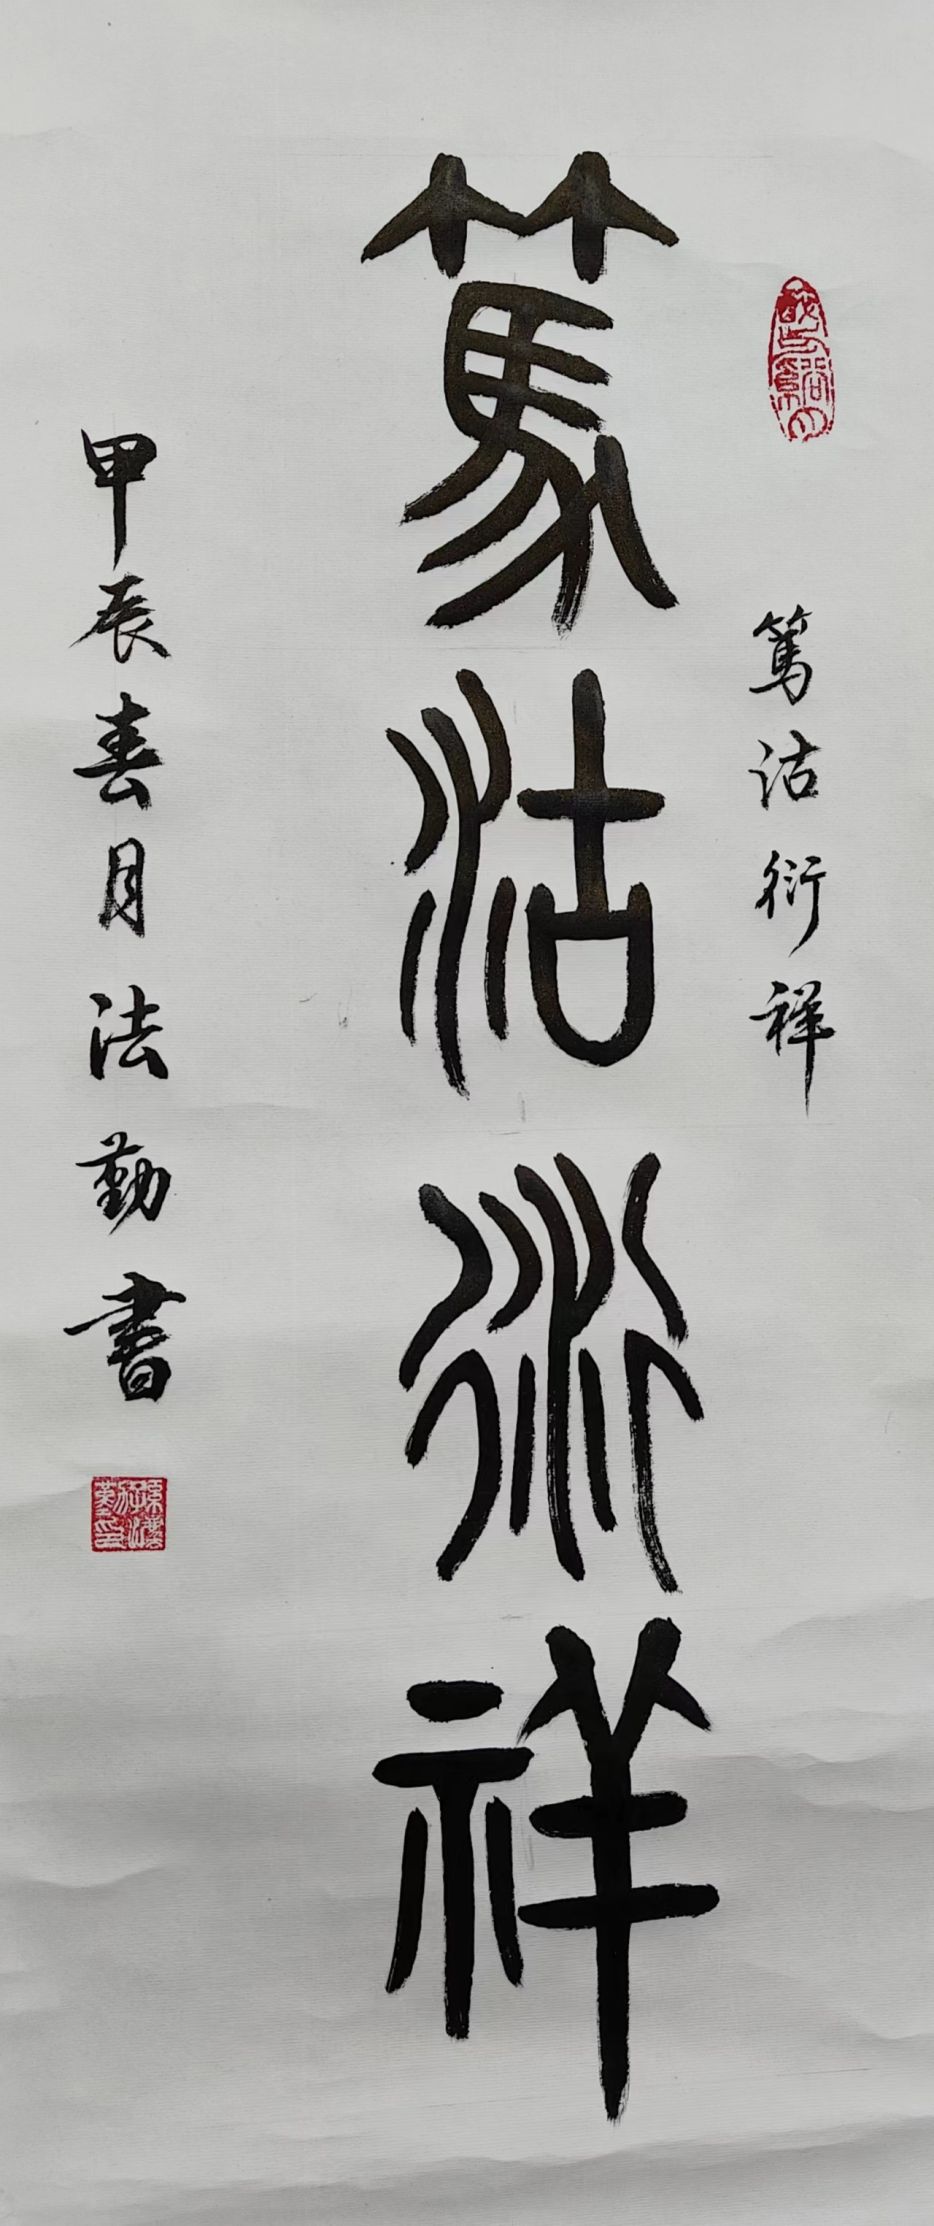 篤沽衍祥
篤沽衍祥
甲辰春月法勤書